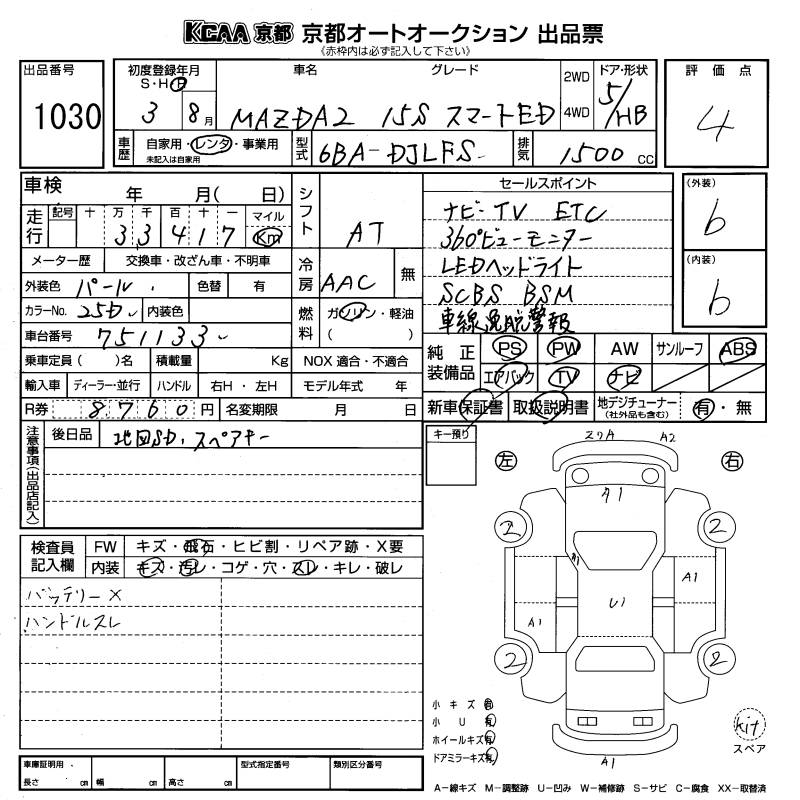 KCAA 京都 京都オートオークション 出品票
《赤枠内は必ず記入して下さい》
出品番号
1030
初度登録年月
S・H・R
3 8月
車名 グレード
MAZDA2 15S スマートED
2WD
4WD
ドア・形状
5/HB
評価点
4
車歴 自家用・レンタ・事業用
未記入は自家用
型式 6BA-DJLFS
排気 1500 cc
車検 年 月( 日)
走行 記号 十 万 千 百 十 一 マイル
33417 Km
メーター歴 交換車・改ざん車・不明車
外装色 パール 色替 有
カラーNo. 25D 内装色
車台番号 751133
乗車定員( )名 積載量 Kg NOX 適合・不適合
輸入車 ディーラー・並行 ハンドル 右H・左H モデル年式 年
R券 8760円 名変期限 月 日
シフト AT
冷房 AAC 無
燃料 ガソリン・軽油
( )
セールスポイント
ナビ-TV ETC
360°ビューモニター
LEDヘッドライト
SCBS BSM
車線逸脱警報
(外装)
b
(内装)
b
純正装備品 PS PW AW サンルーフ ABS
エアバック TV ナビ
新車保証書 取扱説明書 地デジチューナー(社外品も含む) 有・無
注意事項(出品店記入)
後日品 地図SD、スペアキー
キー預り
検査員記入欄
FW キズ・飛石・ヒビ割・リペア跡・X要
内装 キズ・汚レ・コゲ・穴・スレ・キレ・破レ
バッテリーX
ハンドルスレ
左 右
A2
A1
2 2
A1
A1
U1
A1
2 2
A1
小キズ 有
小U 有
ホイールキズ有
ドアミラーキズ有
kit
スペア
車庫証明用
長さ cm 幅 cm 高さ cm
型式指定番号 類別区分番号
A−線キズ M−調整跡 U−凹み W−補修跡 S−サビ C−腐食 XX−取替済